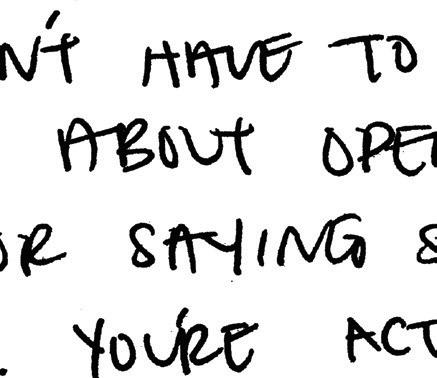 N'T HAVE TO
ABOUT OPE
OR SAYING S
. YOU'RE ACT